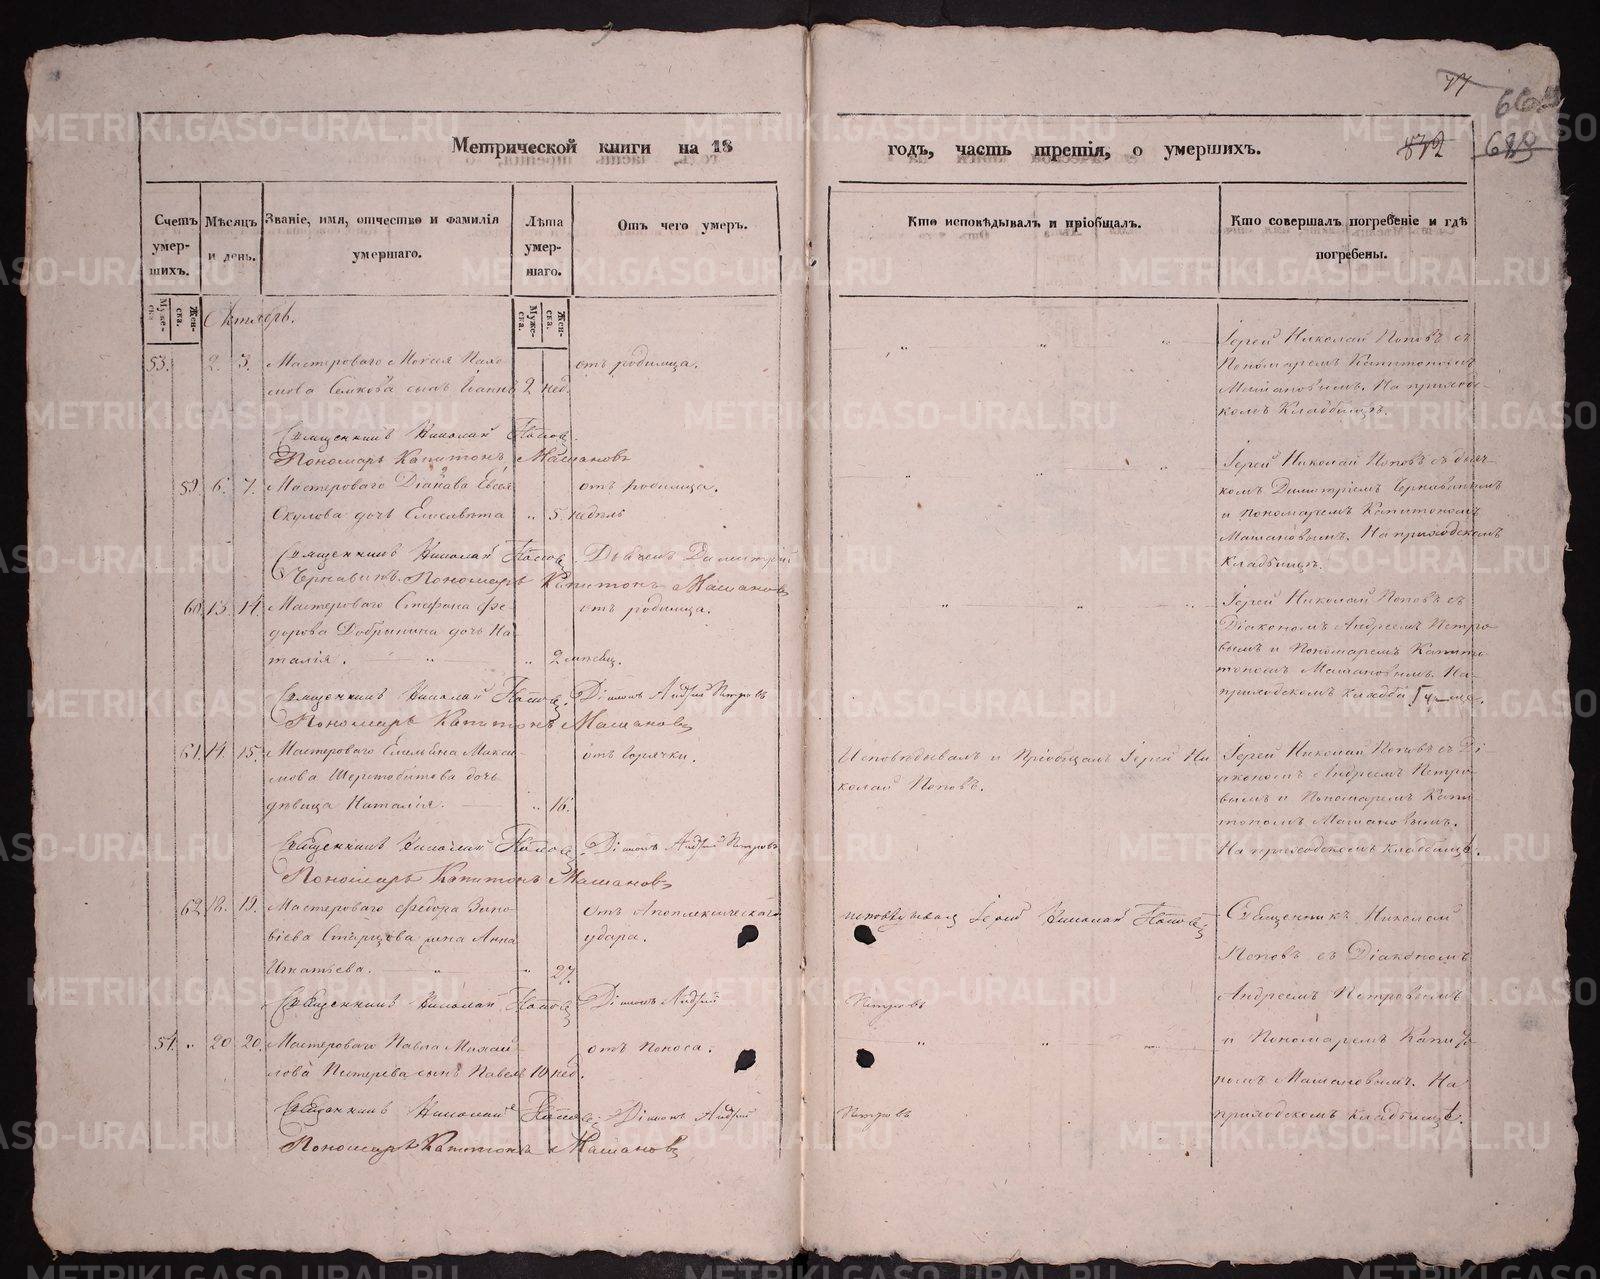 77
664
872
689
Метрической книги на 18
годъ, часть третія, о умершихъ.
Счетъ умер-шихъ.
Мѣсяцъ и день.
Званіе, имя, отчество и фамилія умершаго.
Лѣта умер-шаго.
Отъ чего умеръ.
Кто исповѣдывалъ и пріобщалъ.
Кто совершалъ погребеніе и гдѣ погребены.
Муже-ска.
Жен-ска.
Муже-ска.
Жен-ска.
Октябрь.
53. 2. 3. Мастероваго Моисея Пахо-
мова сынъ Іоаннъ 2 нед.
отъ родимца.
Іерей Николай Поповъ съ
Пономаремъ Капитономъ
Машановымъ. На приход-
комъ Кладбищѣ.
Священникъ Николай Поповъ.
Пономарь Капитонъ Машановъ
59. 6. 7. Мастероваго Евсея
Окулова дочь Елисавета " 5. недѣль
отъ родимца.
Іерей Николай Поповъ съ дьяч-
комъ Димитріемъ Чернавинымъ
и Пономаремъ Капитономъ
Машановымъ. На приходскомъ
Кладбищѣ.
Священникъ Николай Поповъ. Дьячекъ Димитрій
Чернавинъ. Пономарь Капитонъ Машановъ
60. 13. 14. Мастероваго Стефана Фе-
дорова Добрынина дочь На-
талія. " " 2 мѣсяц.
отъ родимца.
Іерей Николай Поповъ съ
Діакономъ Андреемъ Петро-
вымъ и Пономаремъ Капи-
тономъ Машановымъ. На
приходскомъ кладбищѣ.
Священникъ Николай Поповъ. Діаконъ Андрей Петровъ
Пономарь Капитонъ Машановъ
61. 14. 15. Мастероваго Емельяна Макси-
мова Шерстобитова дочь
дѣвица Наталія. " 16.
отъ горячки.
Исповѣдывалъ и Пріобщалъ Іерей Ни-
колай Поповъ.
Іерей Николай Поповъ съ Ді-
акономъ Андреемъ Петро-
вымъ и Пономаремъ Капи
тономъ Машановымъ.
На приходскомъ кладбищѣ.
Священникъ Николай Поповъ. Діаконъ Андрей Петровъ
Пономарь Капитонъ Машановъ
62. 18. 19. Мастероваго Федора Зино-
віева Старцова жена Анна
Игнатьева. " " 27.
отъ Апоплексическаго
удара.
исповѣдывалъ Іерей Николай Поповъ
Священникъ Николай
Поповъ съ Діакономъ
Андреемъ Петровымъ
и Пономаремъ Капито
номъ Машановымъ. На
приходскомъ кладбищѣ.
Священникъ Николай Поповъ Діаконъ Андрей Петровъ
54. " 20 20. Мастероваго Павла Михай-
лова сынъ Павелъ 10 нед.
отъ Поноса.
Священникъ Николай Поповъ. Діаконъ Андрей Петровъ
Пономарь Капитонъ Машановъ
METRIKI.GASO-URAL.RU